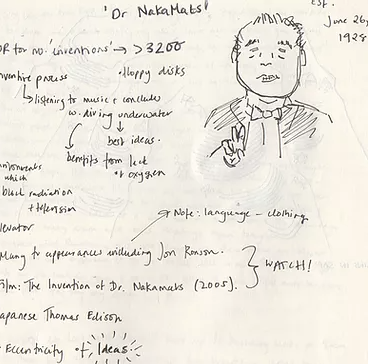 'Dr NakaMats'
Est.
June 26,
1928
OR for no. 'inventions' → > 3200
• floppy disks
inventive process
↳ listening to music & concludes
w. diving underwater
best ideas.
benefits from lack
of oxygen
environments
which
block radiation
+ television
elevator
Note: language - clothing
Many tv appearances including Jon Ronson.
Film: The Invention of Dr. Nakamats (2005).
WATCH!
Japanese Thomas Edison
Eccentricity of Ideas